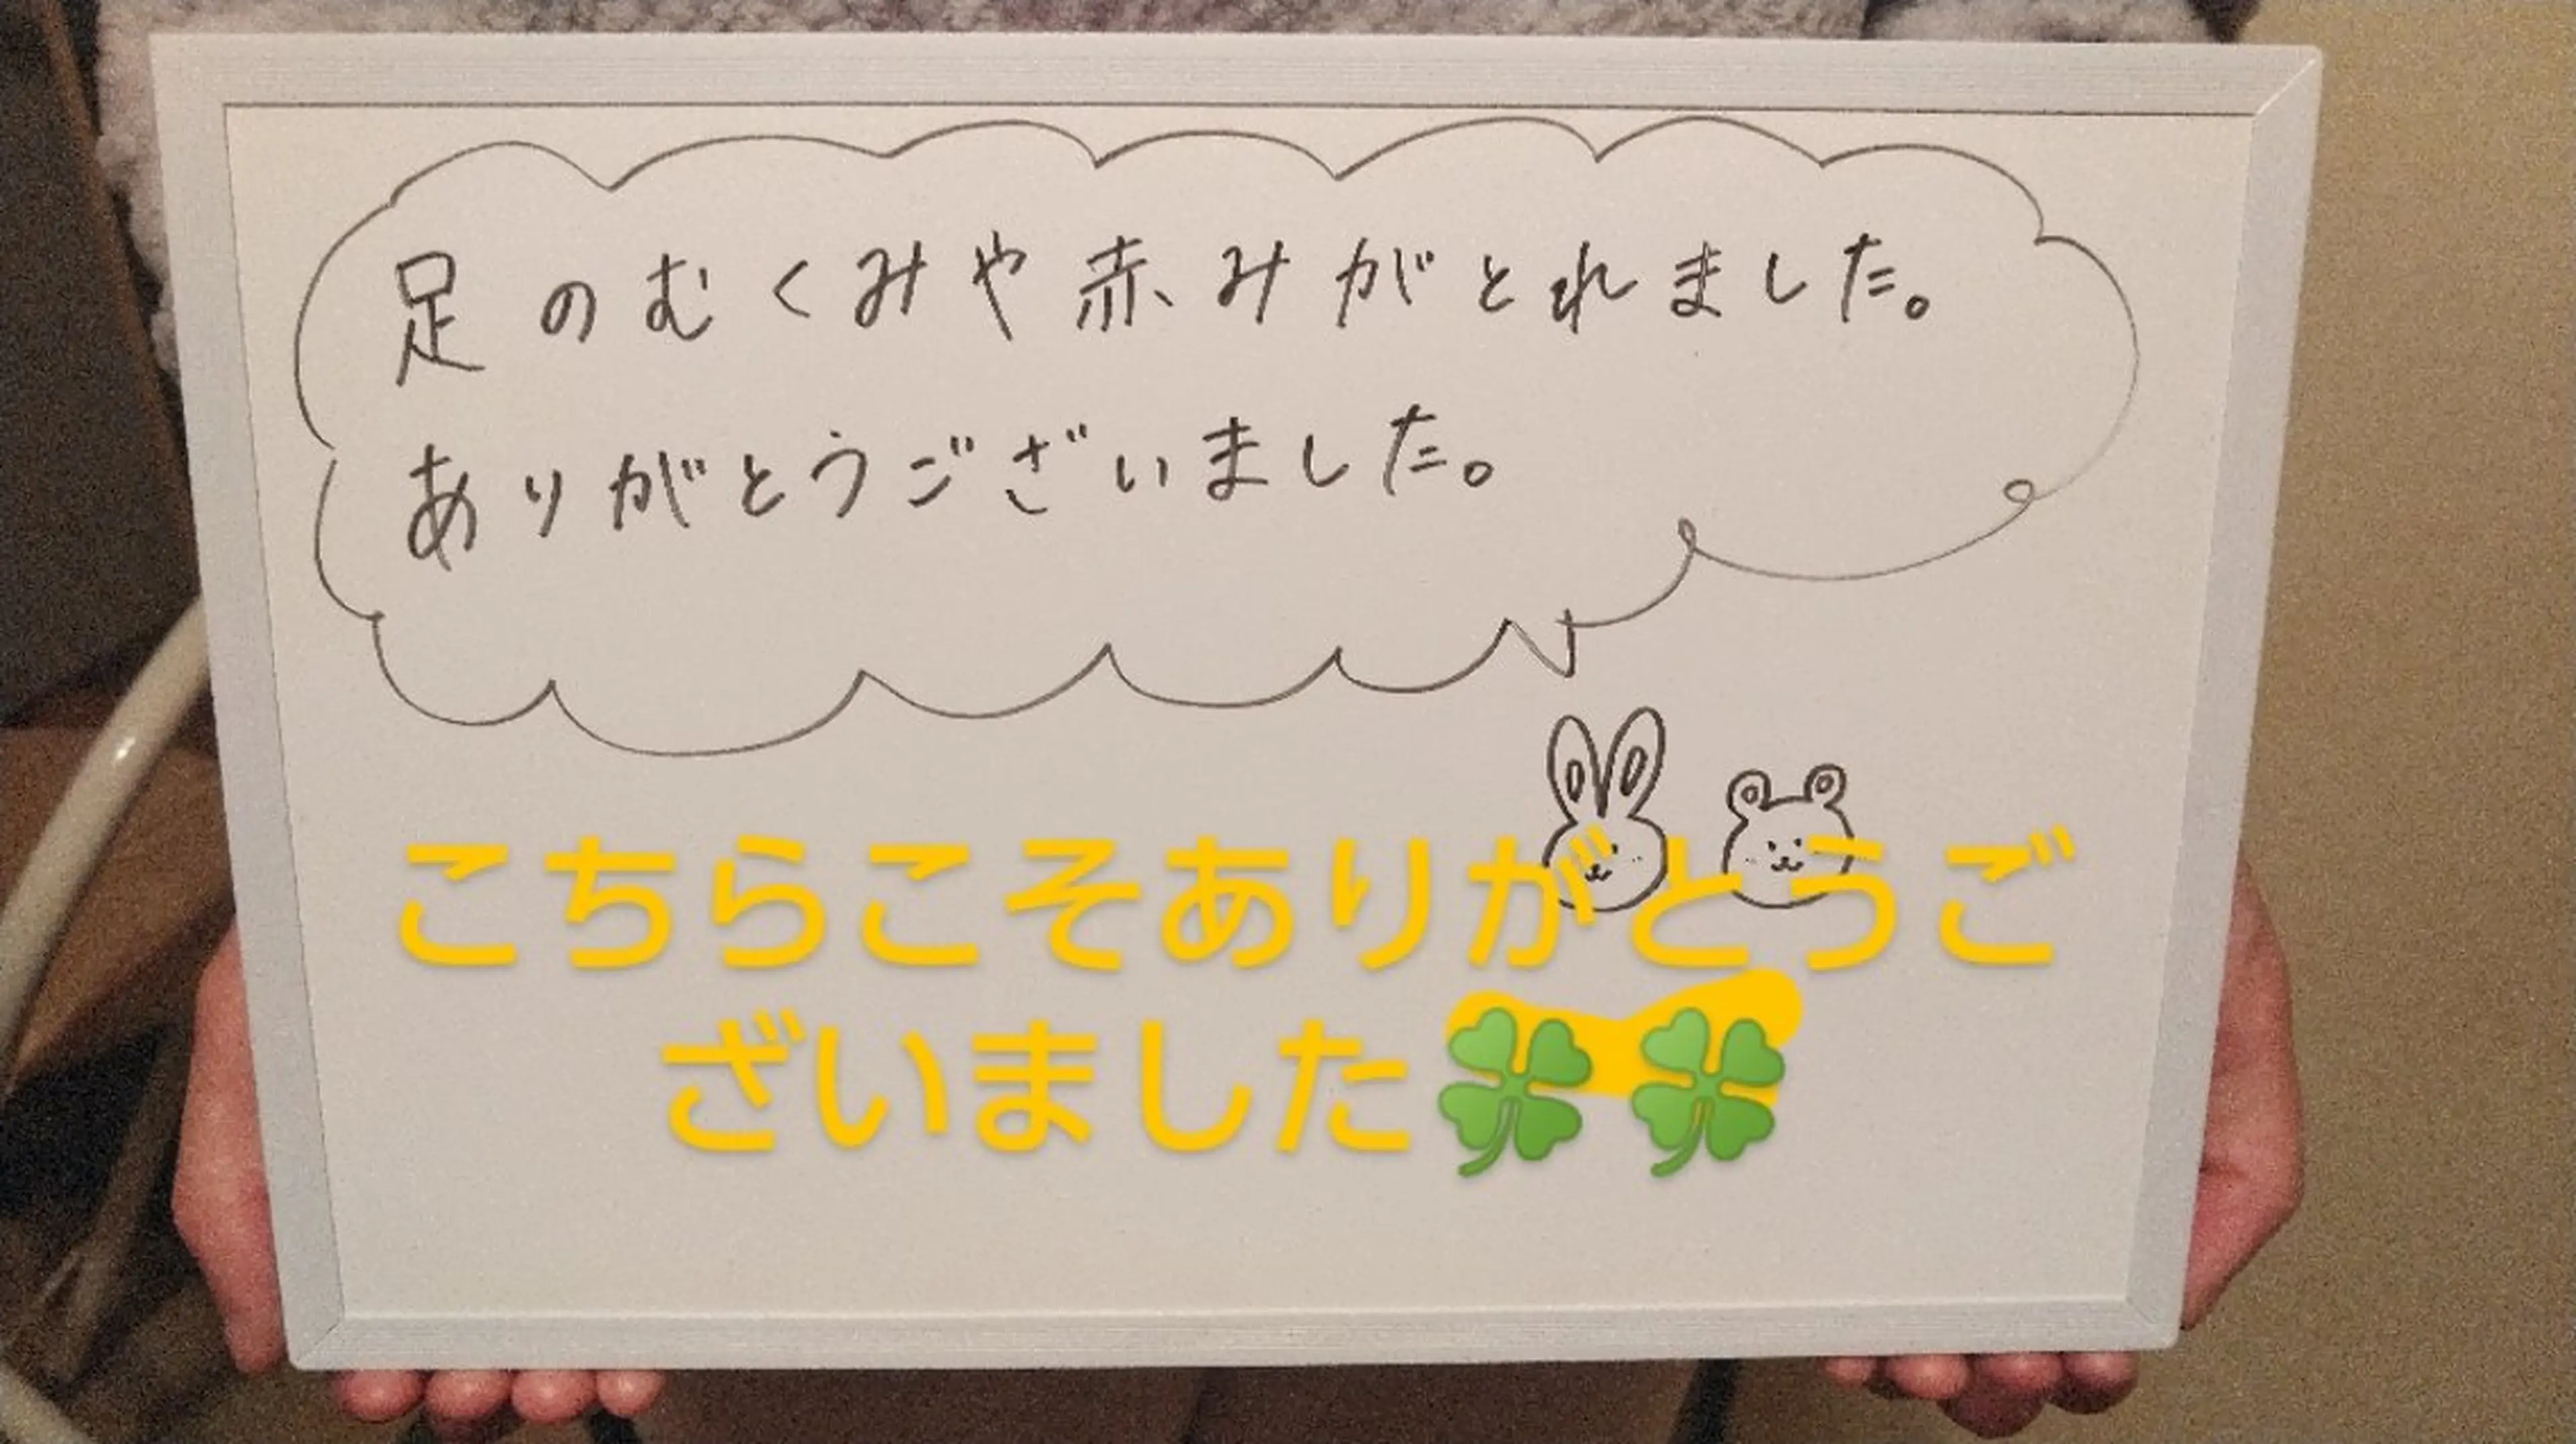 足のむくみや赤みがとれました。
ありがとうございました。
こちらこそありがとうご
ざいました🍀🍀